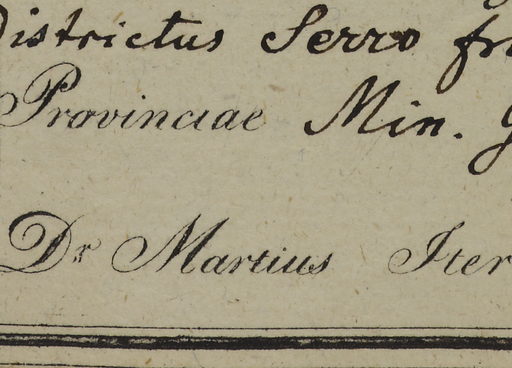 Districtus Serro
Provinciae Min.
Dr Martius Iter